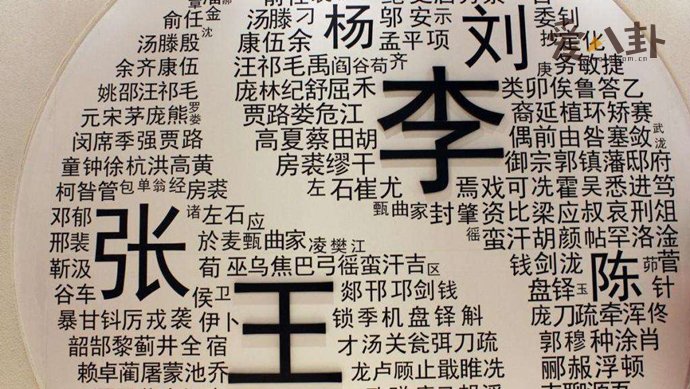 俞任金 汤滕刁 杨 邬安示 刘 委钊
汤滕殷 沈 康伍余 孟平项 化
余齐康伍 汪祁毛禹 阎谷荀 齐 庚 务敏捷
姚邵汪祁毛 庞林纪舒屈禾 李 类卯俟鲁答乙
元宋茅庞熊 罗娄 贾路娄危江 裔延植环矫赛
闵席季强贾路 高夏蔡田胡 偶前由昝塞敛 武泷
童钟徐杭洪高黄 房裘缪干 御宗郭镇藩邸府
柯昝管 包单翁经 房裘 左石崔尤 焉戏可冼霍吴悉进笃
邓郁 张 诸左石应 甄曲家封肇 资比梁应叔哀刑俎
邢裴 於麦甄曲家 凌樊江 徭 蛮汗胡颜帖罕洛淦
靳汲 荀巫乌焦巴弓徭蛮汗吉区 钱剑泷 陈 茆菅
谷车 侯卫 王 郯邗邛盘钱 盘铎 玉 针
暴甘钭厉戎袭 伊卜 锁季机盘铎斛 庞刀疏牵浑佟
韶郜黎蓟井全宿 才汤关瓮弭刀疏 郭穆种涂肖
赖卓蔺屠蒙池乔 龙卢顾止戢睢冼 郦郝浮顿
爱八卦